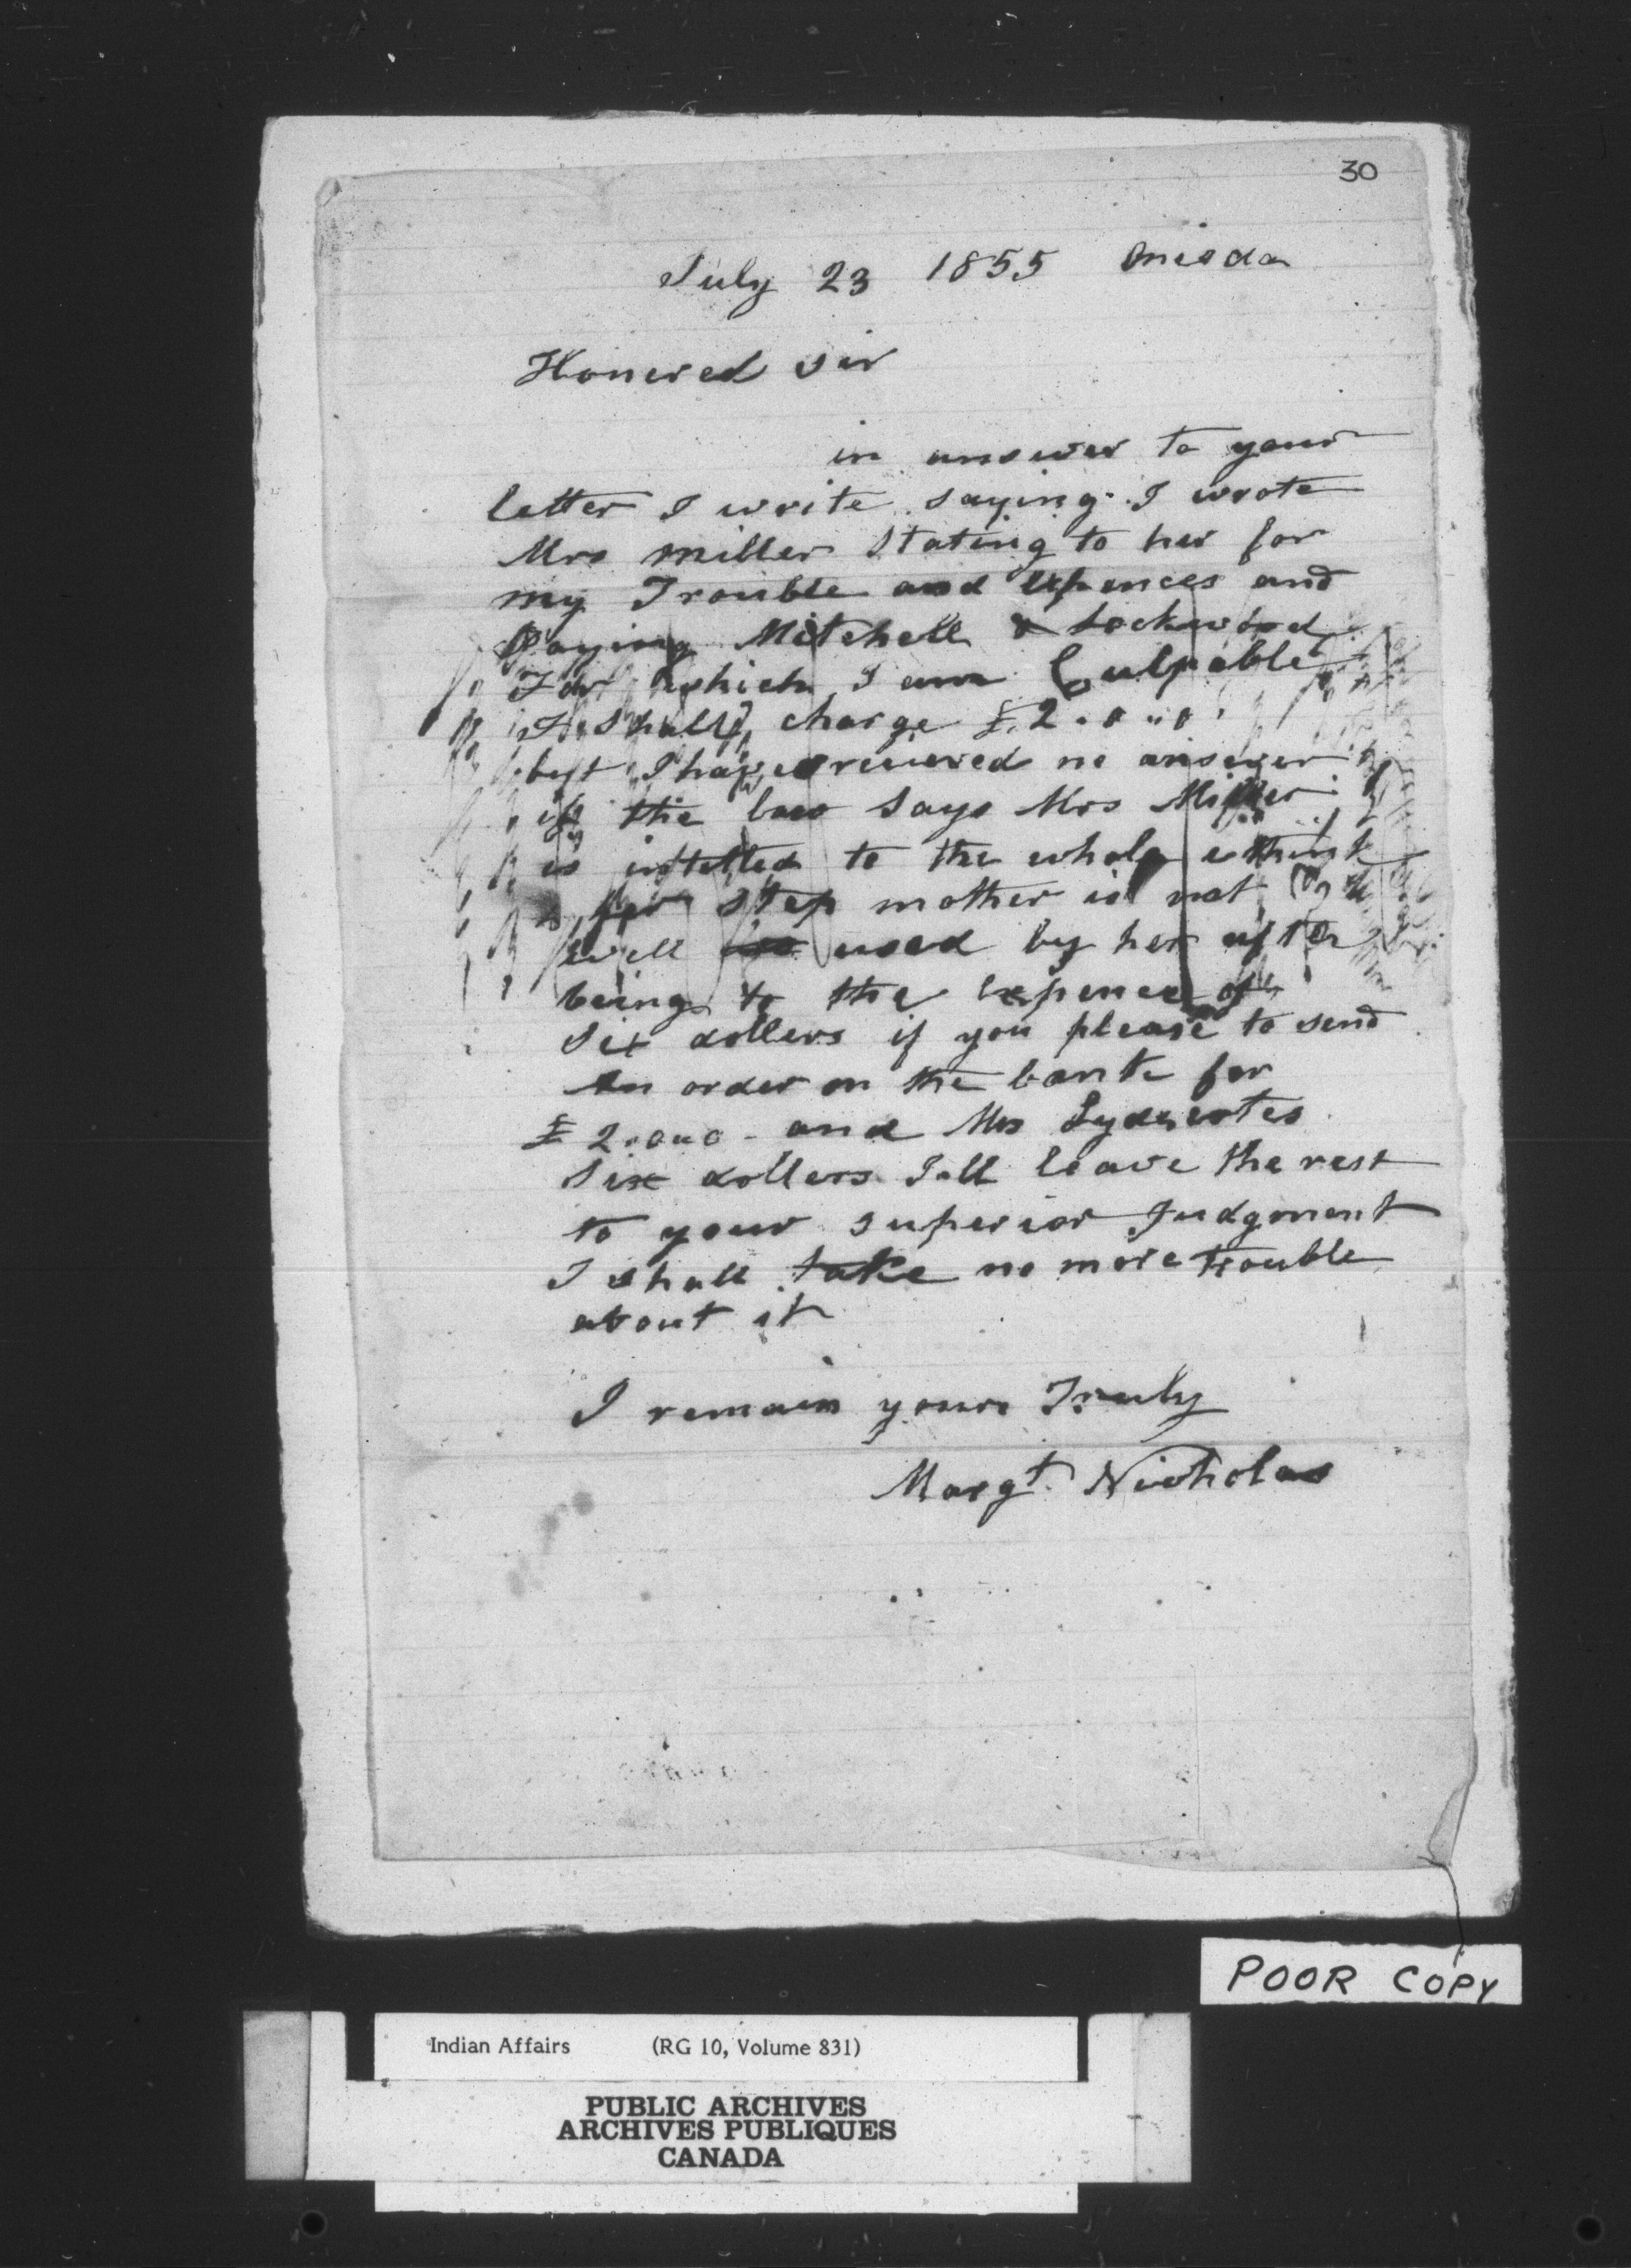 30
July 23 1855 Oneida
Honered sir
in answer to your
letter I write saying I wrote
Mrs Miller Stating to her for
my Trouble and expences and
Paying Mitchell & Lockwood
For which I am Culpable
I Shall charge £2.0.0
but I have recieved no answer
if the law says Mrs Miller
is intetled to the whole I think
her step mother is not
well used by her after
being to the expence of
six dollers if you please to send
an order on the bank for
£2.0.0 - and Mrs
six dollers Ill leave the rest
to your superior Judgment
I shall take no more trouble
about it
I remain yours Truly
Margt. Nicholas
POOR COPY
Indian Affairs (RG 10, Volume 831)
PUBLIC ARCHIVES
ARCHIVES PUBLIQUES
CANADA